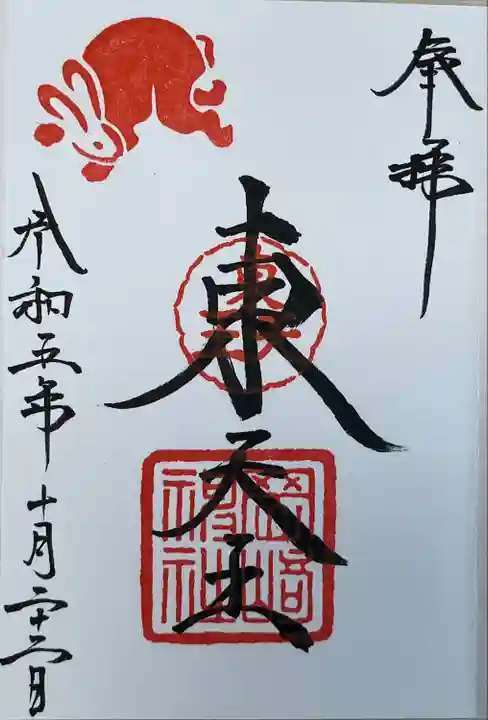 奉拝
東天王
岡崎神社
令和五年十月二十二日